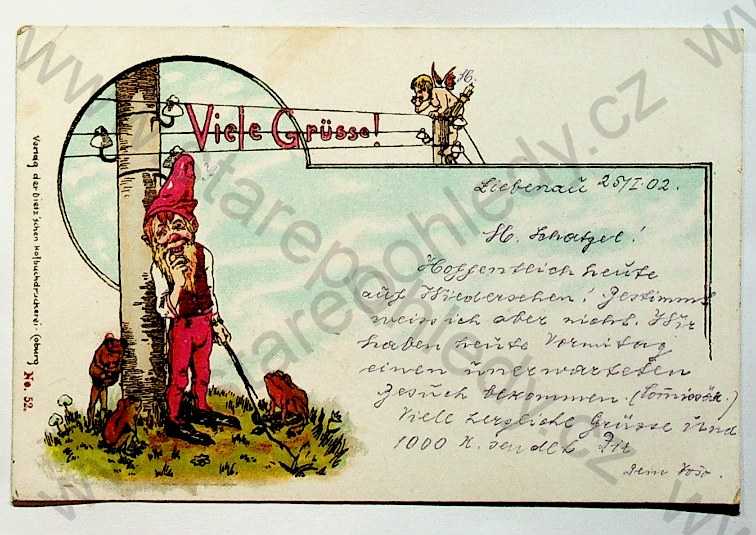 Viele Grüsse!
H.
Liebenau 25/I.02.
H. Schatzel!
Hoffentlich heute
auf Wiedersehen! Bestimmt
weiss ich aber nicht. Wir
haben heute Vormitag
einen unerwarteten
Besuch bekommen.
Viele herzliche Grüsse und
1000 K. sendet Dir
Dein
Verlag der Dietz'schen Hofbuchdruckerei. Coburg
No. 52.
www.starepohledy.cz